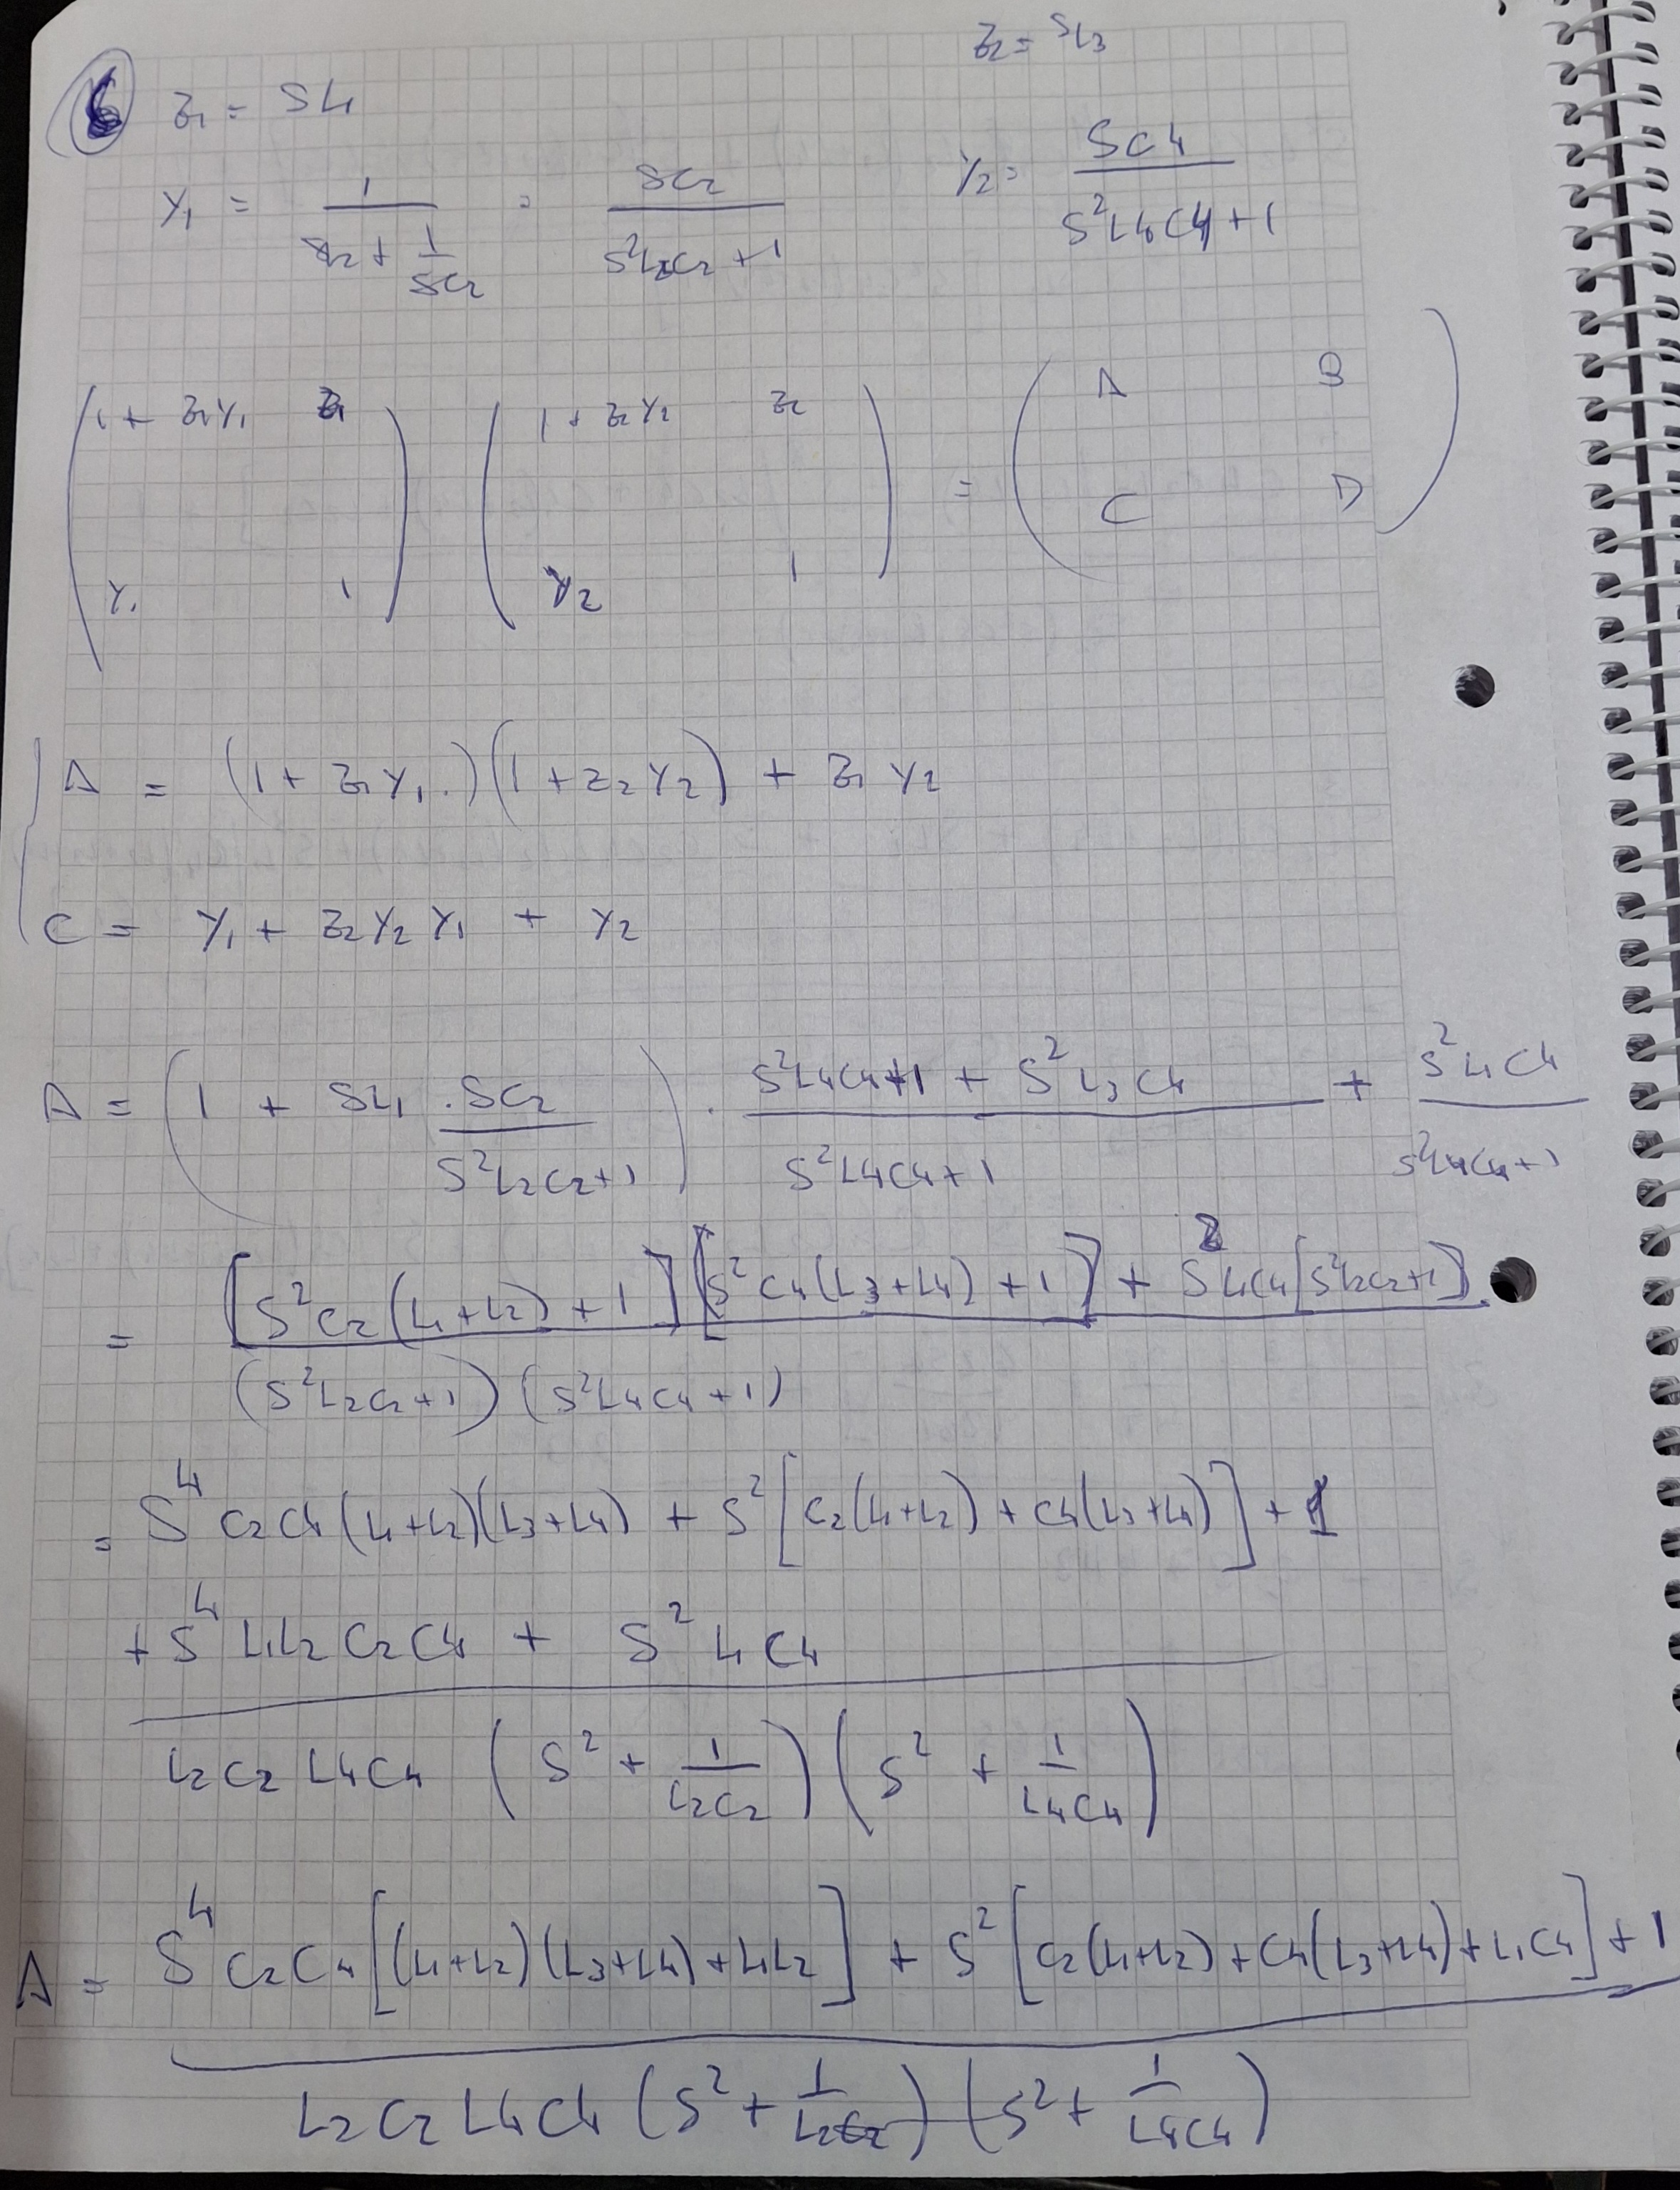 Z2 = SL3
6 Z1 = SL1
Y1 = 1 / (SL2 + 1/SC2) = SC2 / (S²L2C2 + 1) Y2 = SC4 / (S²L4C4 + 1)
( 1 + Z1Y1 Z1 ) ( 1 + Z2Y2 Z2 ) = ( A B )
( Y1 1 ) ( Y2 1 ) ( C D )
A = (1 + Z1Y1.)(1 + Z2Y2) + Z1Y2
C = Y1 + Z2Y2Y1 + Y2
A = (1 + SL1 . SC2 / (S²L2C2+1)) . (S²L4C4+1 + S²L3C4) / (S²L4C4+1) + S²L1C4 / (S²L4C4+1)
= ([S²C2(L1+L2)+1][S²C4(L3+L4)+1] + S²L1C4[S²L2C2+1]) / ((S²L2C2+1)(S²L4C4+1))
= S⁴C2C4(L1+L2)(L3+L4) + S²[C2(L1+L2) + C4(L3+L4)] + 1
+ S⁴L1L2C2C4 + S²L1C4
L2C2L4C4 (S² + 1/L2C2)(S² + 1/L4C4)
A = S⁴C2C4[(L1+L2)(L3+L4)+L1L2] + S²[C2(L1+L2)+C4(L3+L4)+L1C4]+1
L2C2L4C4(S²+1/L2C2)(S²+1/L4C4)